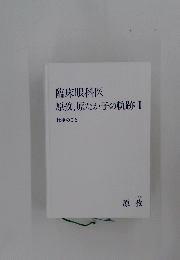 臨床眼科医
原敦、原たか子の軌跡 I
原 敦